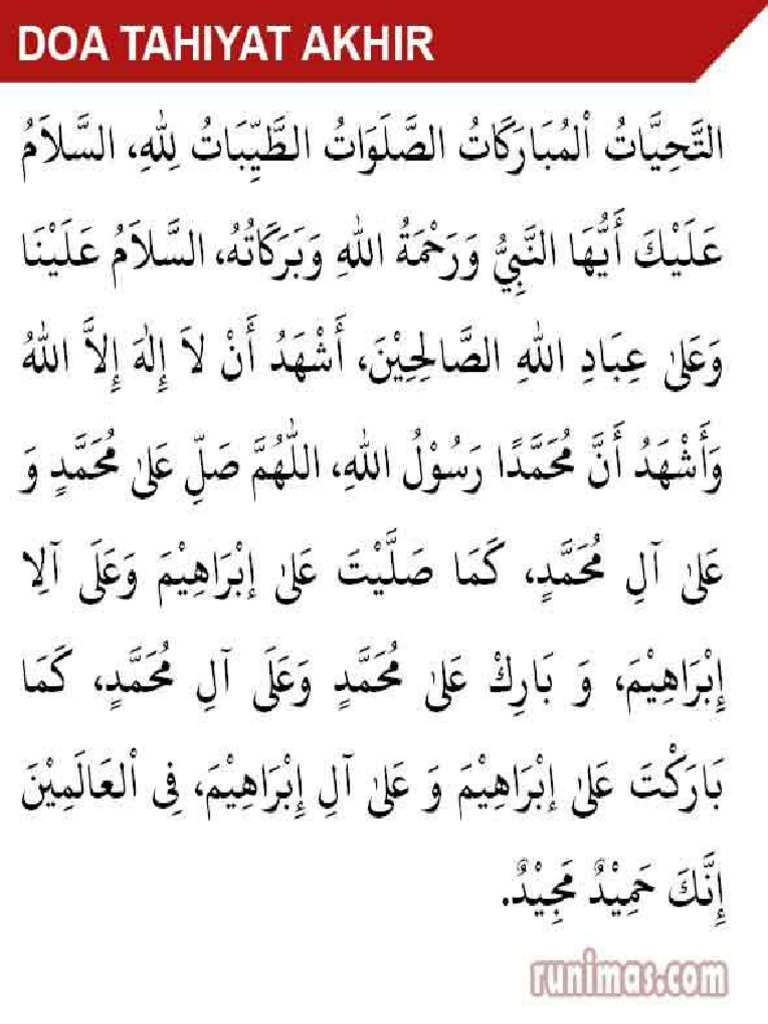 DOA TAHIYAT AKHIR
التَّحِيَّاتُ اْلمُبَارَكَاتُ الصَّلَوَاتُ الطَّيِّبَاتُ لِلّٰهِ، السَّلاَمُ
عَلَيْكَ أَيُّهَا النَّبِيُّ وَرَحْمَةُ اللهِ وَبَرَكَاتُهُ، السَّلاَمُ عَلَيْنَا
وَعَلىٰ عِبَادِ اللهِ الصَّالِحِيْنَ، أَشْهَدُ أَنْ لاَ إِلٰهَ إِلاَّ اللهُ
وَأَشْهَدُ أَنَّ مُحَمَّدًا رَسُوْلُ اللهِ، اللّٰهُمَّ صَلِّ عَلىٰ مُحَمَّدٍ وَ
عَلىٰ آلِ مُحَمَّدٍ، كَمَا صَلَّيْتَ عَلىٰ إبْرَاهِيْمَ وَعَلَى آلِا
إِبْرَاهِيْمَ، وَ بَارِكْ عَلىٰ مُحَمَّدٍ وَعَلَى آلِ مُحَمَّدٍ، كَمَا
بَارَكْتَ عَلىٰ إبْرَاهِيْمَ وَ عَلىٰ آلِ إِبْرَاهِيْمَ، فِى اْلعَالَمِيْنَ
إِنَّكَ حَمِيْدٌ مَجِيْدٌ.
runimas.com